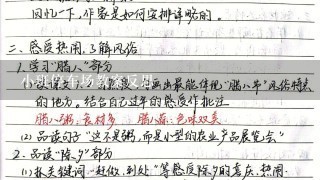 回忆一下，作家是如何安排详略的。
二、感受热闹，了解风俗
1. 学习"腊八"部分
画出最能体现"腊八节"风俗特点
的地方。结合自己过年的感受作批注
腊八粥:食材多 腊八蒜:色味双美
(2) 品读句子"这不是粥，而是小型的农业产品展览会"
2. 品读"除夕"部分
(1) 抓关键词"赶做、到处"等感受除夕的喜庆、热闹.
小班停车场教案反思